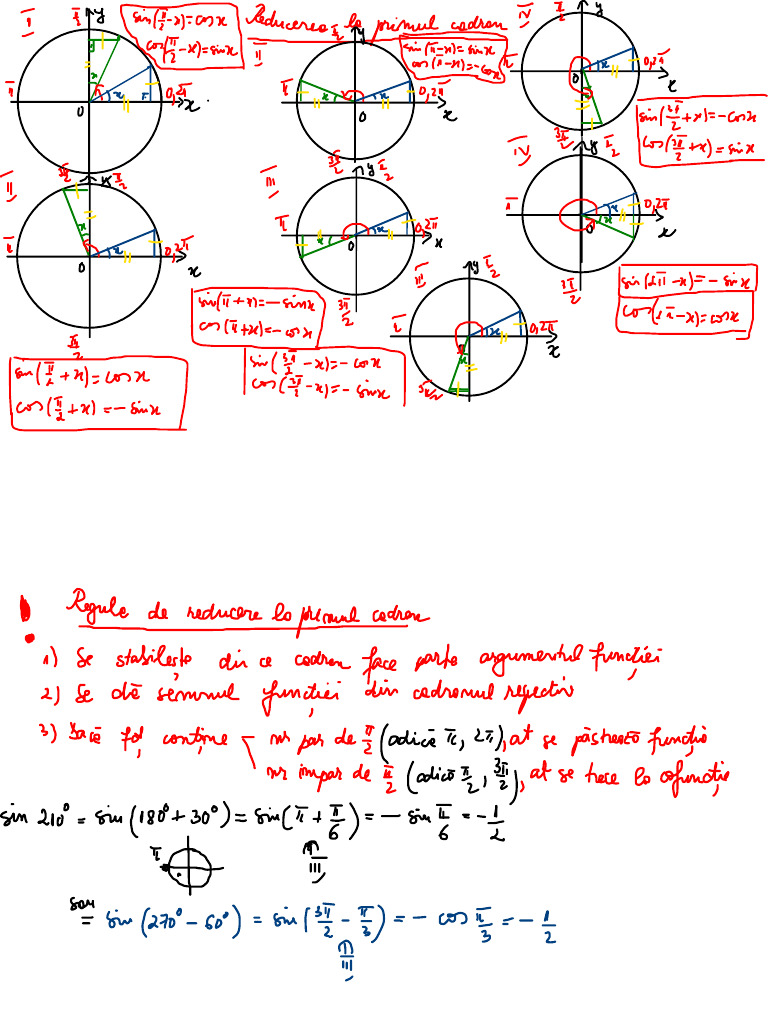 Reducerea la primul cadran
I
sin(π/2 - x) = cos x
cos(π/2 - x) = sin x
II
sin(π - x) = sin x
cos(π - x) = -cos x
IV
sin(3π/2 + x) = -cos x
cos(3π/2 + x) = sin x
II
sin(π/2 + x) = cos x
cos(π/2 + x) = - sin x
III
sin(π + x) = - sin x
cos(π + x) = - cos x
III
sin(3π/2 - x) = - cos x
cos(3π/2 - x) = - sin x
IV
sin(2π - x) = - sin x
cos(2π - x) = cos x
! Regule de reducere la primul cadran
1) Se stabilește din ce cadran face parte argumentul funcției
2) Se dă semnul funcției din cadranul respectiv
3) Dacă fcț conține - nr par de π/2 (adică π, 2π), at se păstrează funcția
nr impar de π/2 (adică π/2, 3π/2), at se trece la cofuncție
sin 210° = sin(180° + 30°) = sin(π + π/6) = - sin π/6 = - 1/2
π
III
sau
= sin(270° - 60°) = sin(3π/2 - π/3) = - cos π/3 = - 1/2
III